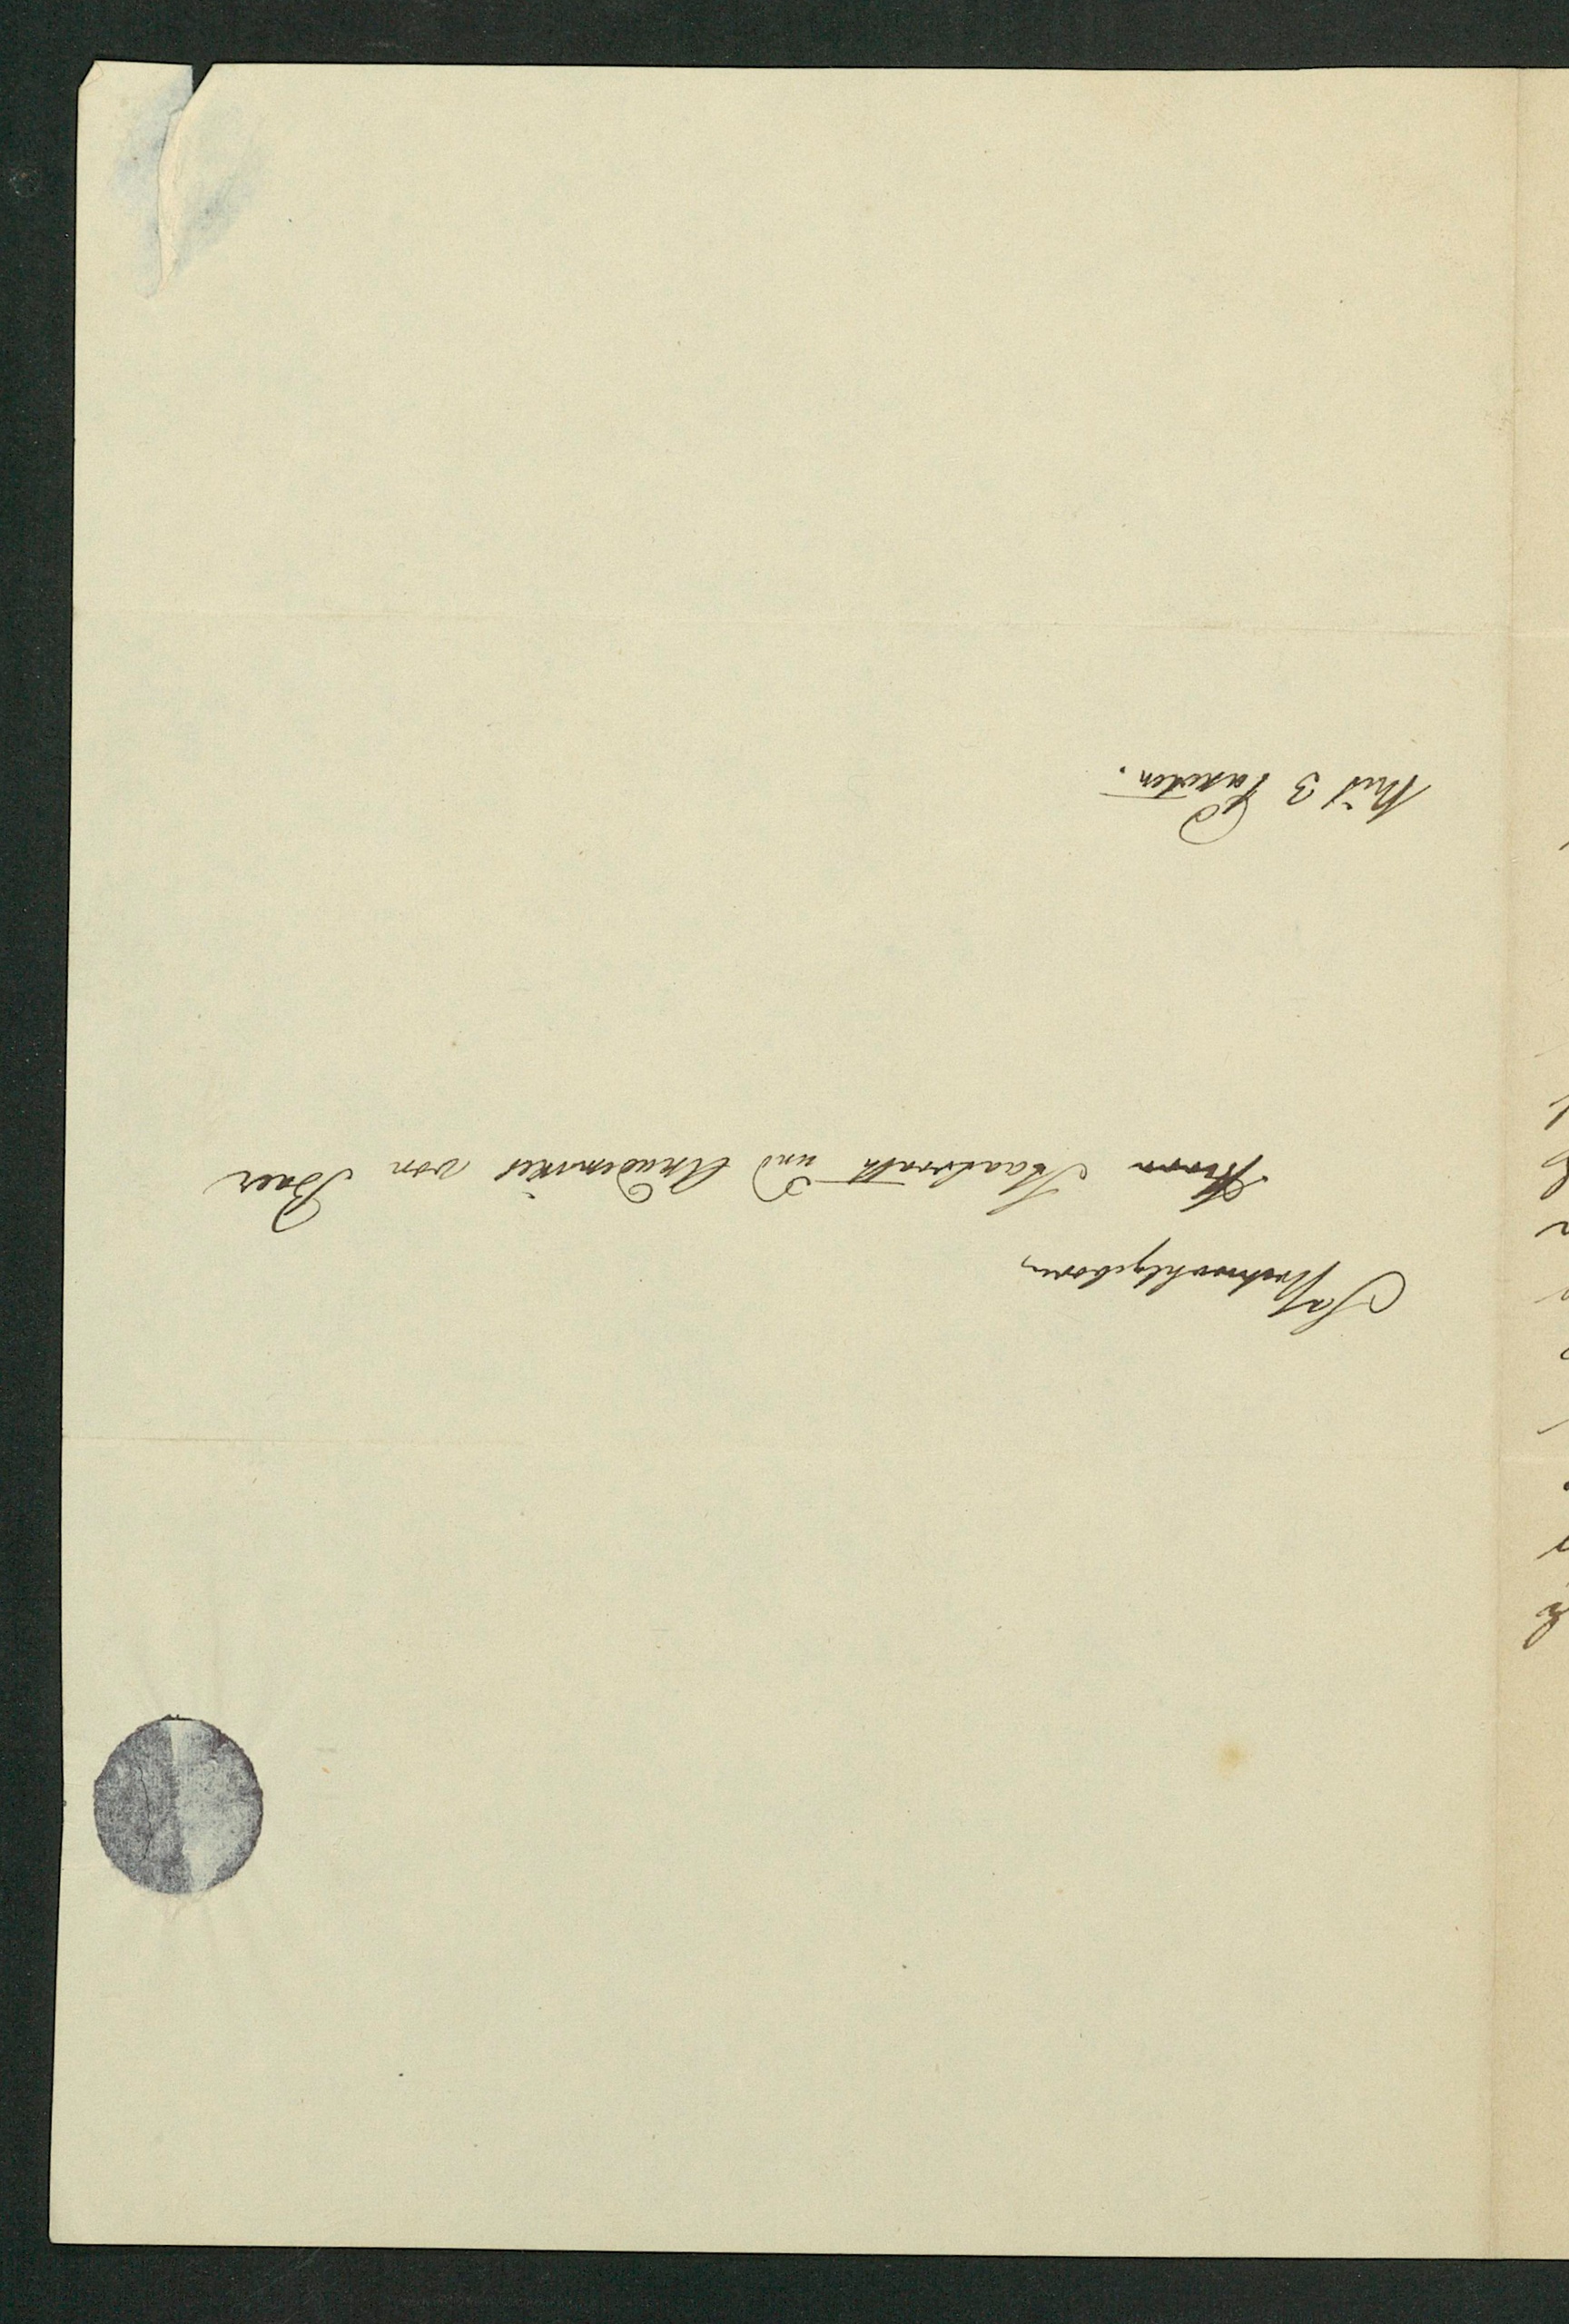 Sr Hochwohlgeboren
Herrn Staatsrath und Akademiker von Baer
Mit 3 Paketen.